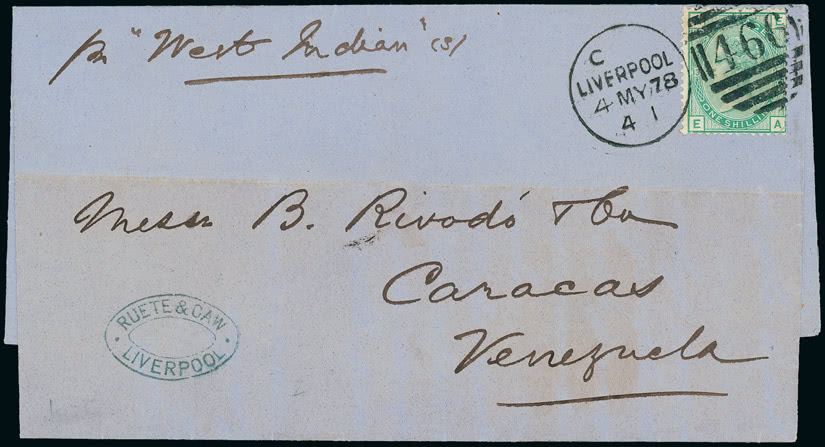 pr "West Indian" (s)
C
LIVERPOOL
4 MY 78
4 1
466
E
ONE SHILLING
E A
Messrs B. Rivodó & Co
Caracas
Venezuela
RUETE & CAW
LIVERPOOL